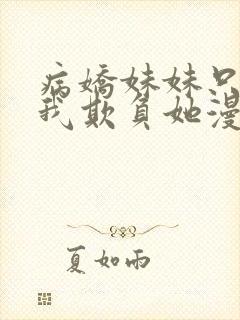 病嬌妹妹只
我欺負她漫
夏如雨